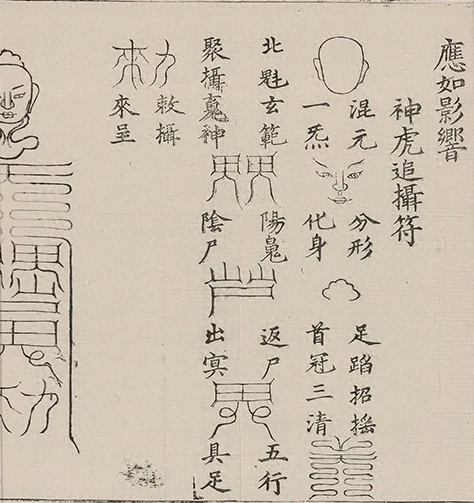 應如影響
神虎追攝符
混元 分形 足蹈招搖
一炁 化身 首冠三清
北魁玄範 陽䰟 返尸 五行
聚攝䰟神 陰尸 出冥 具足
敕攝
來呈